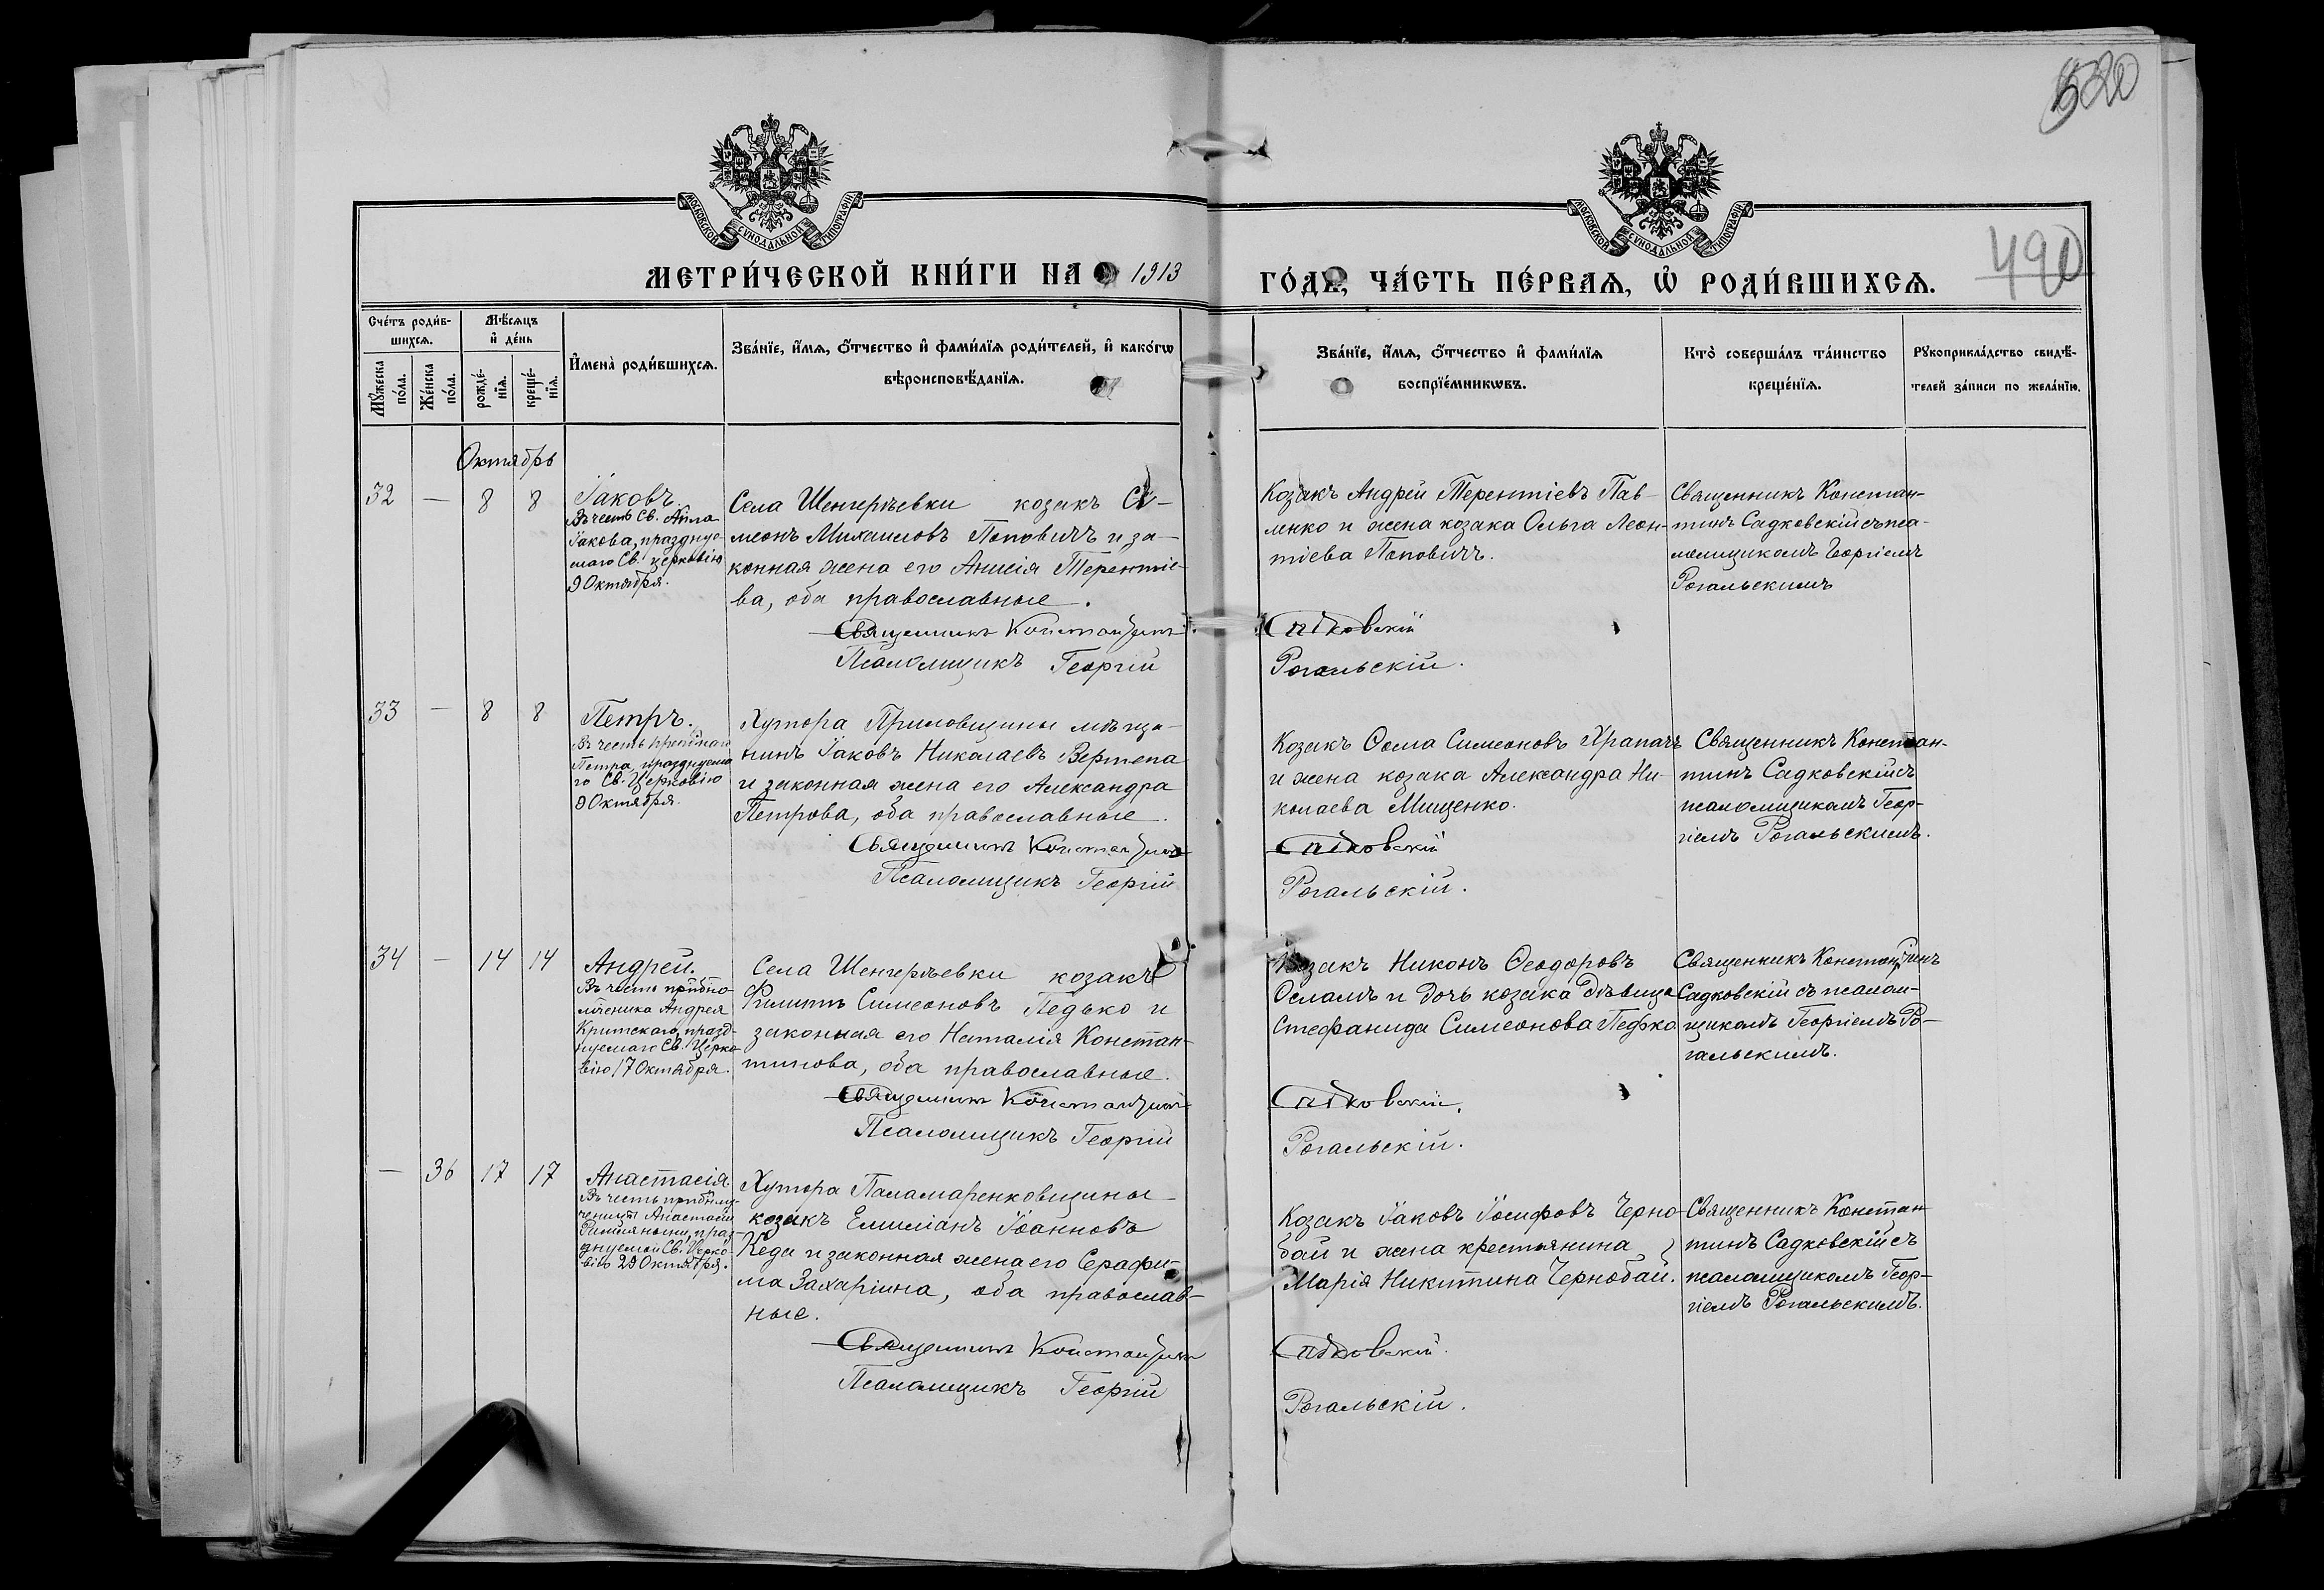 520
МОСКОВСКОЙ СУНОДАЛЬНОЙ ТИПОГРАФІИ
МОСКОВСКОЙ СУНОДАЛЬНОЙ ТИПОГРАФІИ
МЕТРИ́ЧЕСКОЙ КНИ́ГИ НА 1913
ГО́ДЪ, ЧА́СТЬ ПЕ́РВАѦ, Ѡ҆ РОДИ́ВШИХСѦ.
490
Сче́тъ роди́в-
шихсѧ.
Мꙋ́жеска по́ла.
Же́нска по́ла.
Мѣ́сѧцъ
и҆ де́нь
рожде́-
нїѧ.
креще́-
нїѧ.
И҆мена̀ роди́вшихсѧ.
Зва́нїе, и҆́мѧ, ѻ҆́тчество и҆ фами́лїѧ роди́телей, и҆ како́гѡ
вѣроисповѣ́данїѧ.
Зва́нїе, и҆́мѧ, ѻ҆́тчество и҆ фами́лїѧ
воспрїе́мникѡвъ.
Кто̀ соверша́лъ та́инство
креще́нїѧ.
Рꙋкоприкла́дство свидѣ́-
телей за́писи по жела́нїю.
Октябрь
32 — 8 8
Іаковъ
Въ честь Св. Апла
Іакова, празднуе-
маго Св. церковію
9 Октября.
Села Шенгеріевки козакъ Си-
меонъ Михаиловъ Поповичъ и за-
конная жена его Анисія Терентіе-
ва, оба православные.
Священникъ Константинъ
Псаломщикъ Георгій
Козакъ Андрей Терентіевъ Пав-
ленко и жена козака Ольга Леон-
тіева Поповичъ.
Садковскій
Рогальскій.
Священникъ Констан-
тинъ Садковскій съ пса-
ломщикомъ Георгіемъ
Рогальскимъ
33 — 8 8
Петръ.
Въ честь препбнаго
Петра, празднуема
го Св. Церковію
9 Октября.
Хутора Примовщины мѣща-
нинъ Іаковъ Николаевъ Вертепа
и законная жена его Александра
Петрова, оба православные.
Священникъ Константинъ
Псаломщикъ Георгій
Козакъ Ѳома Симеоновъ Храпачъ
и жена козака Александра Ни-
колаева Мищенко.
Садковскій
Рогальскій.
Священникъ Констан-
тинъ Садковскій съ
псаломщикомъ Геор-
гіемъ Рогальскимъ.
34 — 14 14
Андрей.
Въ честь прпбно-
мченика Андрея
Критскаго, празд-
нуемаго Св. Церко-
вію 17 Октября.
Села Шенгеріевки козакъ
Филиппъ Симеоновъ Педько и
законная его Наталія Констан-
тинова, оба православные.
Священникъ Константинъ
Псаломщикъ Георгій
Козакъ Никонъ Ѳеодоровъ
Осламъ и дочь козака дѣвица
Стефанида Симеонова Педько
Садковскій.
Рогальскій.
Священникъ Константинъ
Садковскій съ псалом-
щикомъ Георгіемъ Ро-
гальскимъ.
— 36 17 17
Анастасія
Въ честь прпбнму-
ченицы Анастасіи
Римляныни, праз-
днуемой Св. Церко-
вію 29 Октября.
Хутора Паламаренковщины
козакъ Емиліанъ Іоанновъ
Кеда и законная жена его Серафи-
ма Захаріина, оба православ-
ные.
Священникъ Константинъ
Псаломщикъ Георгій
Козакъ Іаковъ Іосифовъ Черно-
бай и жена крестьянина
Марія Никитина Чернобай.
Садковскій.
Рогальскій.
Священникъ Констан-
тинъ Садковскій съ
псаломщикомъ Геор-
гіемъ Рогальскимъ.